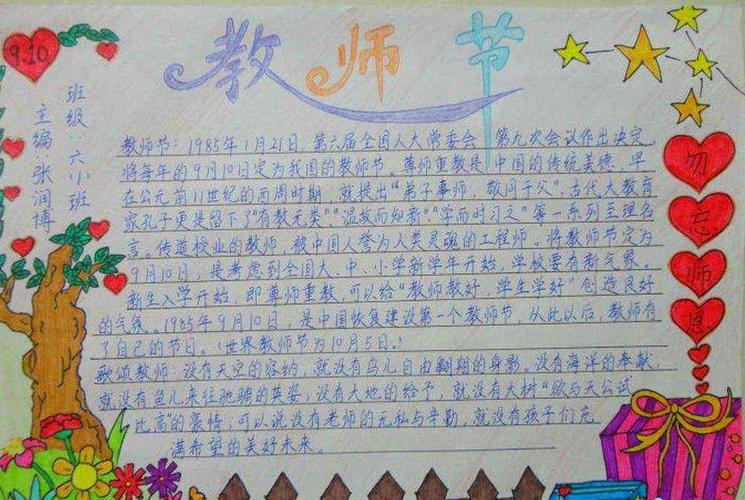 9.10
教师节
班级 六小班
主编:张润博
教师节:1985年1月21日,第六届全国人大常委会 第九次会议作出决定,
将每年的9月10日定为我国的教师节。尊师重教是中国的传统美德,早
在公元前11世纪的西周时期,就提出“弟子事师,敬同于父”,古代大教育
家孔子更是留下了“有教无类”“温故而知新”“学而时习之”等一系列至理名
言。传道授业的教师,被中国人誉为人类灵魂的工程师。将教师节定为
9月10日,是考虑到全国大、中、小学新学年开始,学校要有新气象。
新生入学开始,即尊师重教,可以给“教师教好,学生学好”创造良好
的气氛。1985年9月10日 是中国恢复建设第一个教师节,从此以后,教师有
了自己的节日。(世界教师节为10月5日。)
歌颂教师:没有天空的容纳,就没有鸟儿自由翱翔的身影。没有海洋的奉献,
就没有鱼儿来往驰骋的英姿;没有大地的给予,就没有大树“欲与天公试
比高”的豪情,可以说没有老师的无私与辛勤,就没有孩子们充
满希望的美好未来。
勿忘师恩